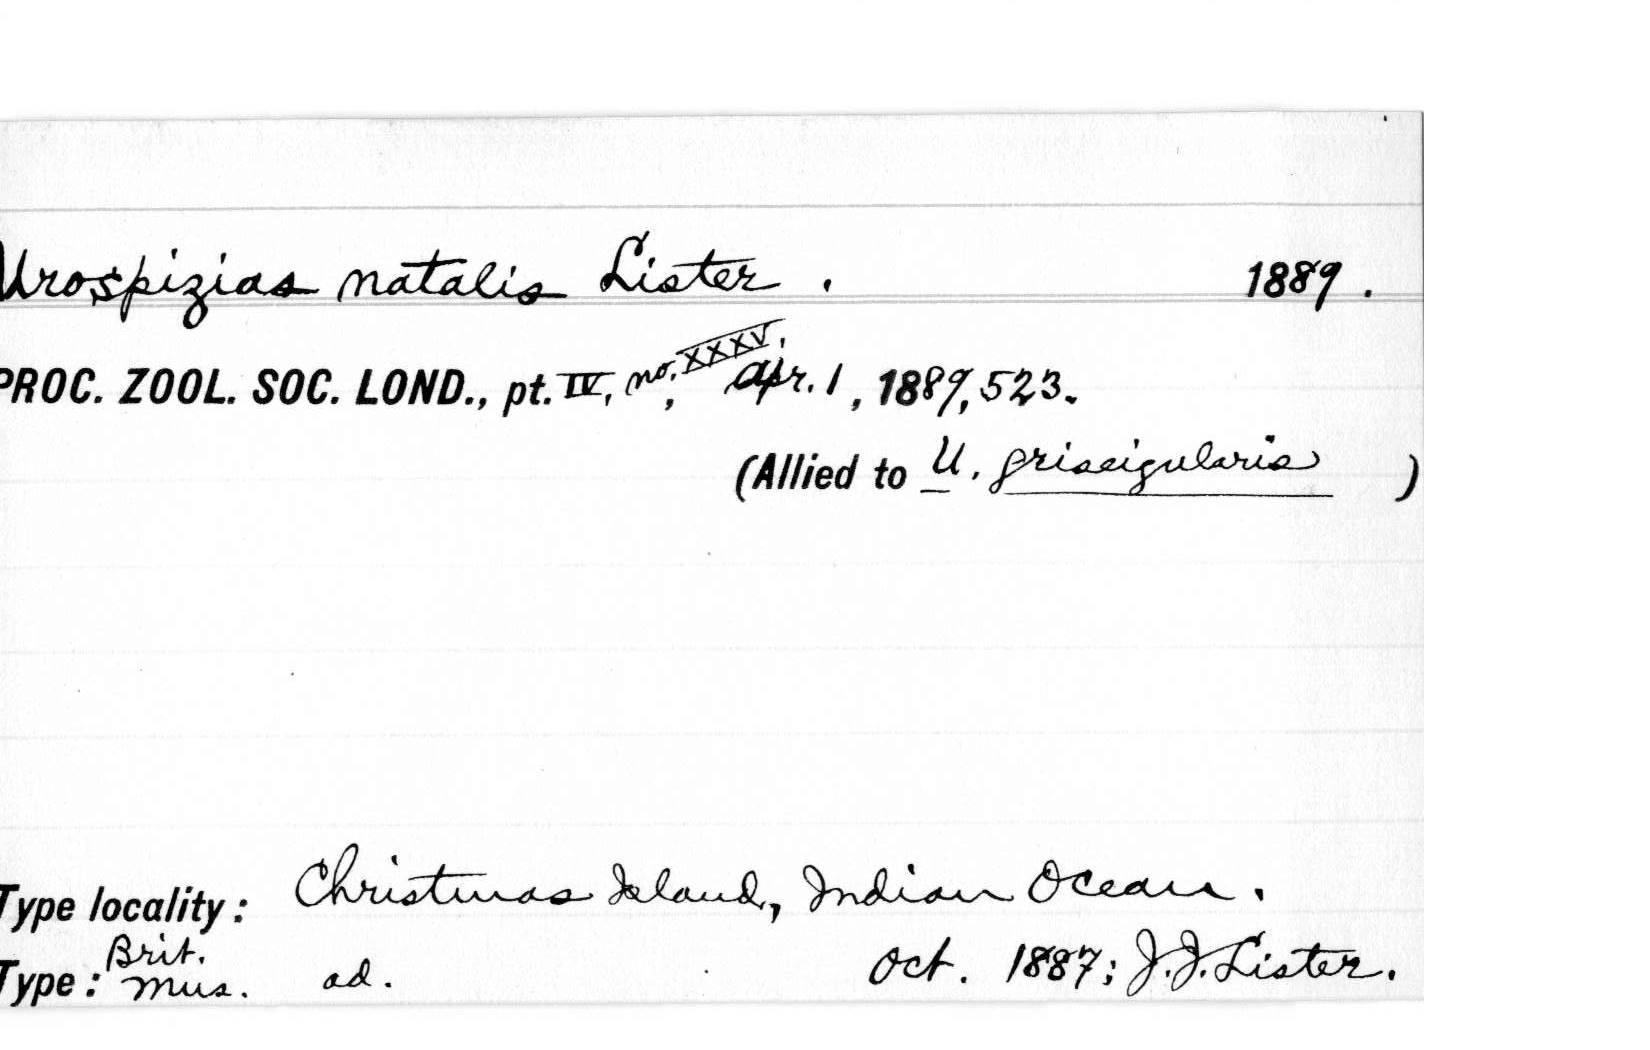 Urospizias natalis Lister . 1889 .
PROC. ZOOL. SOC. LOND., pt. IV, no. XXXV, Apr. 1, 1889, 523.
(Allied to U. griseigularis )
Type locality: Christmas Island, Indian Ocean.
Type: Brit. Mus. ad. Oct. 1887; J.J. Lister.